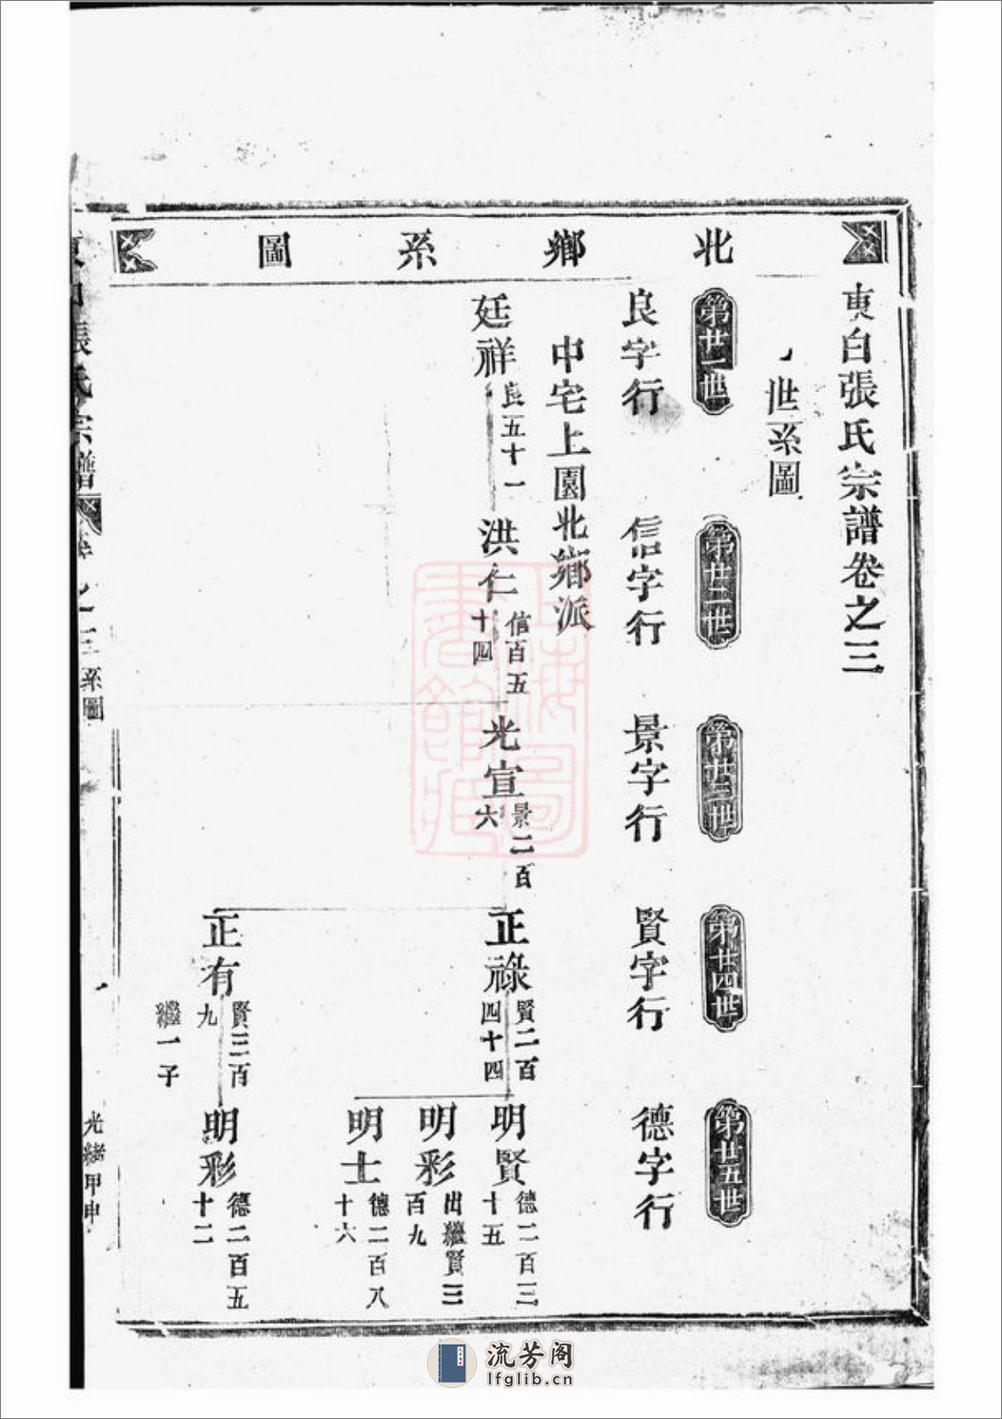 東白張氏宗譜卷之三
世系圖
北鄉系圖
第廿一世
第廿二世
第廿三世
第廿四世
第廿五世
良字行
信字行
景字行
賢字行
德字行
中宅上園北鄉派
廷祥
良五十一
洪仁
信百五
十四
光宣
景二百
六
正祿
賢二百
四十四
明賢
德二百三
十五
明彩
出繼賢三
百九
明士
德二百八
十六
正有
賢三百
九
繼一子
明彩
德二百五
十二
張氏宗譜
之三
系圖
光緒甲申
流芳阁
lfglib.cn